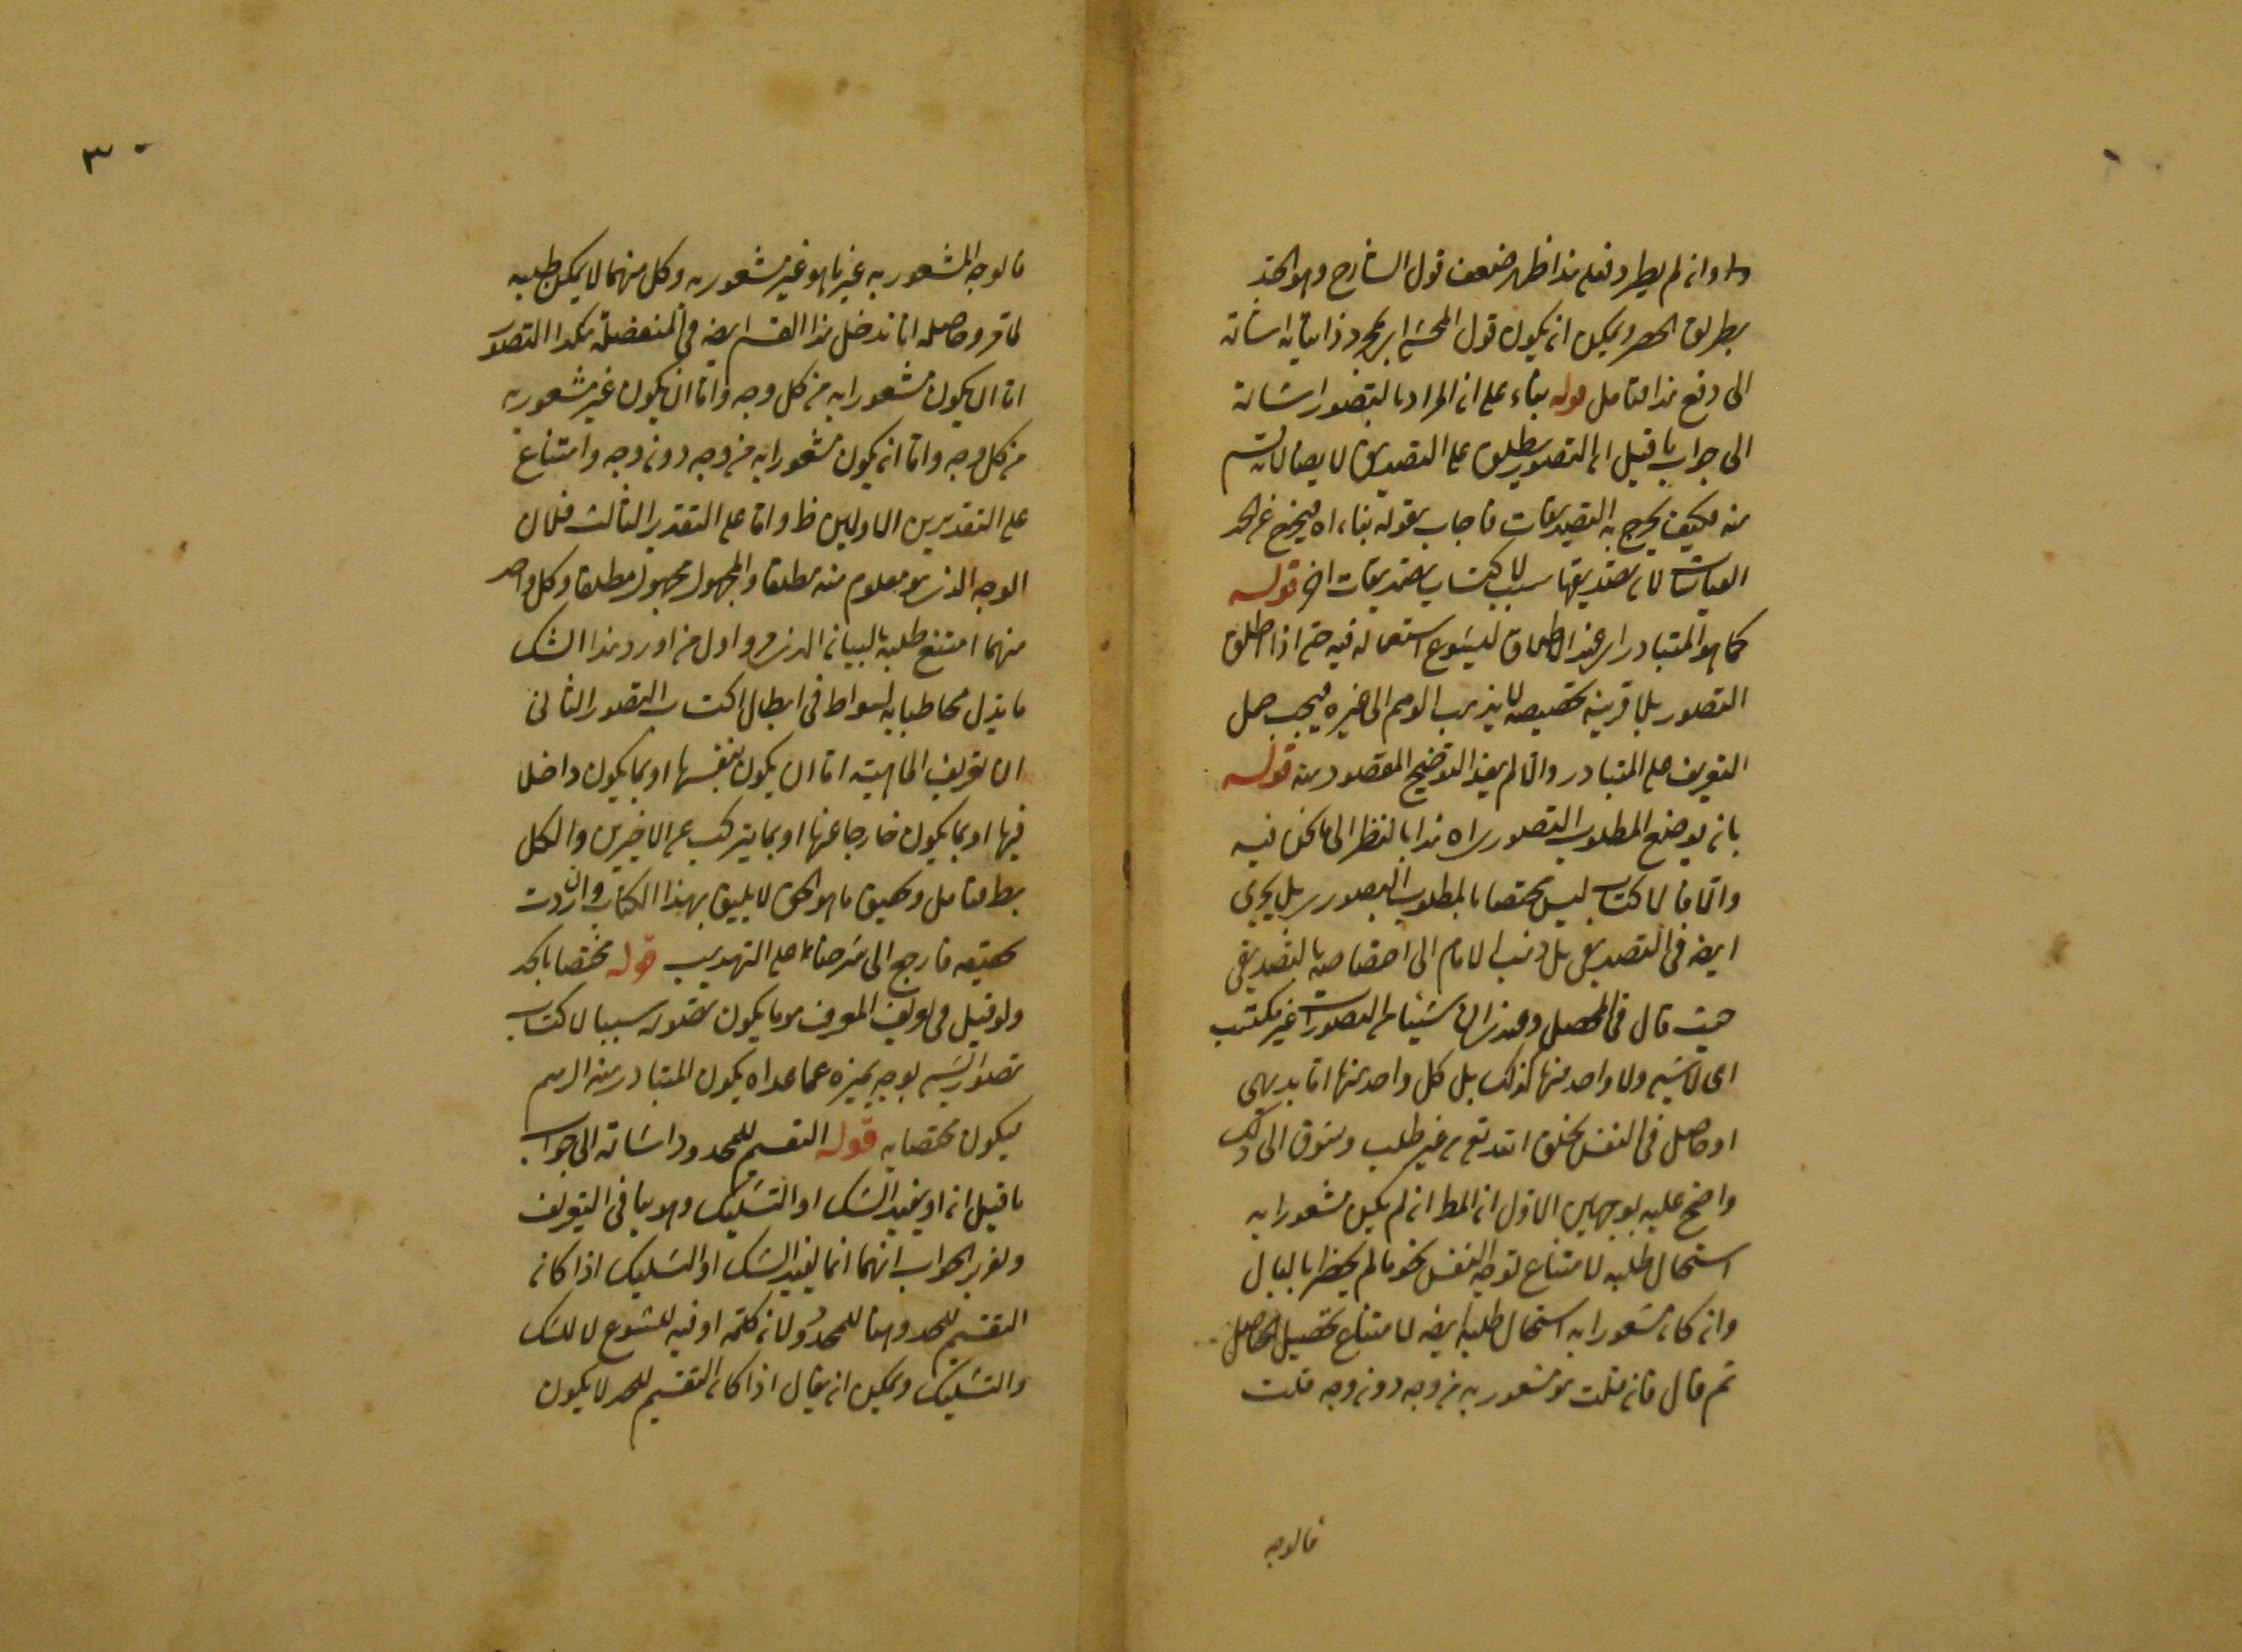 وان لم يطرد فعلى هذا ظهر ضعف قول الشارح وهو الحد
بطريق الحصر ويمكن ان يكون قول المحشي اشارة
الى دفع هذا فتأمل قوله بناء على ان المراد بالتصور اشارة
الى جواب ما قيل ان التصور يطلق على التصديق ايضا لانه قسم
منه فكيف يخرج به التصديقات فاجاب بقوله بناء اه فيخرج عن الحد
القياسات لان تصديقها سبب لاكتساب تصديقات اخر قوله
كما هو المتبادر اى عند الاطلاق لشيوع استعماله فيه حتى اذا اطلق
التصور بلا قرينة مخصصة لا يذهب الوهم الى غيره فيجب حمل
التعريف على المتبادر والا لم يفد التوضيح المقصود منه قوله
بانه يوضع المطلوب التصورى اه هذا بالنظر الى ما نحن فيه
والا فالاكتساب ليس مختصا بالمطلوب التصورى بل يجرى
ايضا فى التصديقى بل ذهب الامام الى اختصاصه بالتصديقى
حيث قال فى المحصل وعندى ان شيئا من التصورات غير مكتسب
اى لا شىء ولا واحد منها كذلك بل كل واحد منها اما بديهى
او حاصل فى النفس بخلق الله تع من غير طلب وشوق الى ذلك
واحتج عليه بوجهين الاول ان المط ان لم يكن مشعورا به
استحال طلبه لامتناع توجه النفس نحو ما لم يخطر بالبال
وان كان مشعورا به استحال طلبه ايضا لامتناع تحصيل الحاصل
ثم قال فان قلت هو مشعور به من وجه دون وجه قلت
فالوجه
٣
فالوجه المشعور به غير ما هو غير مشعور به وكل منهما لا يمكن طلبه
لما مر وحاصله انا ندخل هذا القسم ايضا فى المنفصلة هكذا التصور
اما ان يكون مشعورا به من كل وجه واما ان يكون غير مشعور به
من كل وجه واما ان يكون مشعورا به من وجه دون وجه وامتناع
على التقديرين الاولين ظ واما على التقدير الثالث فلان
الوجه الذى هو معلوم منه مطلقا والمجهول مجهول مطلقا وكل واحد
منهما امتنع طلبه بالبيان الذى مر واول من اورد هذا الشك
مانذل مخاطبا به سقراط فى ابطال اكتساب التصور الثانى
ان تعريف الماهية اما ان يكون بنفسها او بما يكون داخلا
فيها او بما يكون خارجا عنها او بما يتركب عن الاخيرين والكل
بط فتأمل وتحقيق ما هو الحق لا يليق بهذا الكتاب وان اردت
تحقيقه فارجع الى شرحنا على التهذيب قوله مختصا بالحد
ولو قيل فى تعريف المعرف هو ما يكون تصوره سببا لاكتساب
تصور الشىء بوجه يميزه عما عداه يكون المتبادر منه الرسم
ليكون مختصا به قوله التقسيم للمحدود اشارة الى جواب
ما قيل ان او يفيد الشك او التشكيك وهو ينافى التعريف
وتقرير الجواب انهما انما يفيد الشك او التشكيك اذا كان
التقسيم للحد وهنا للمحدود لان كلمة او فيه للتنويع لا للشك
والتشكيك ويمكن ان يقال اذا كان التقسيم للحد لا يكون